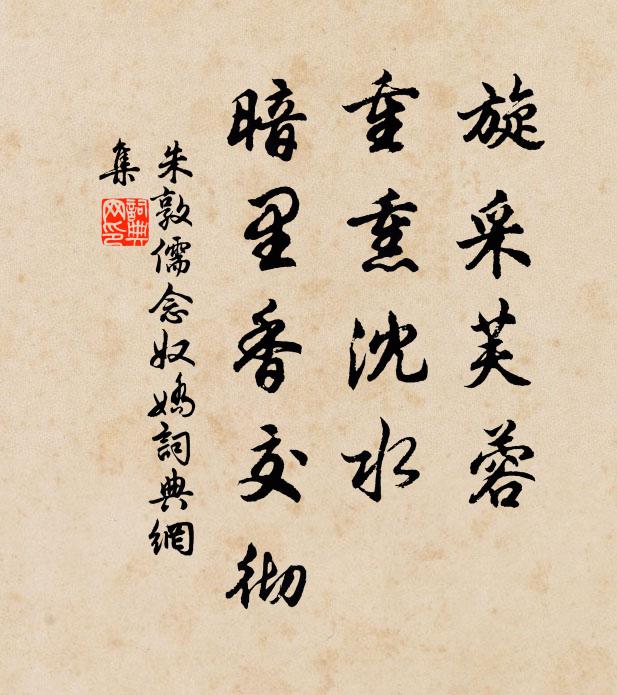 旋采芙蓉
重熏沈水
暗里香交彻
朱敦儒念奴嬌詞典網
集
詞典
网印